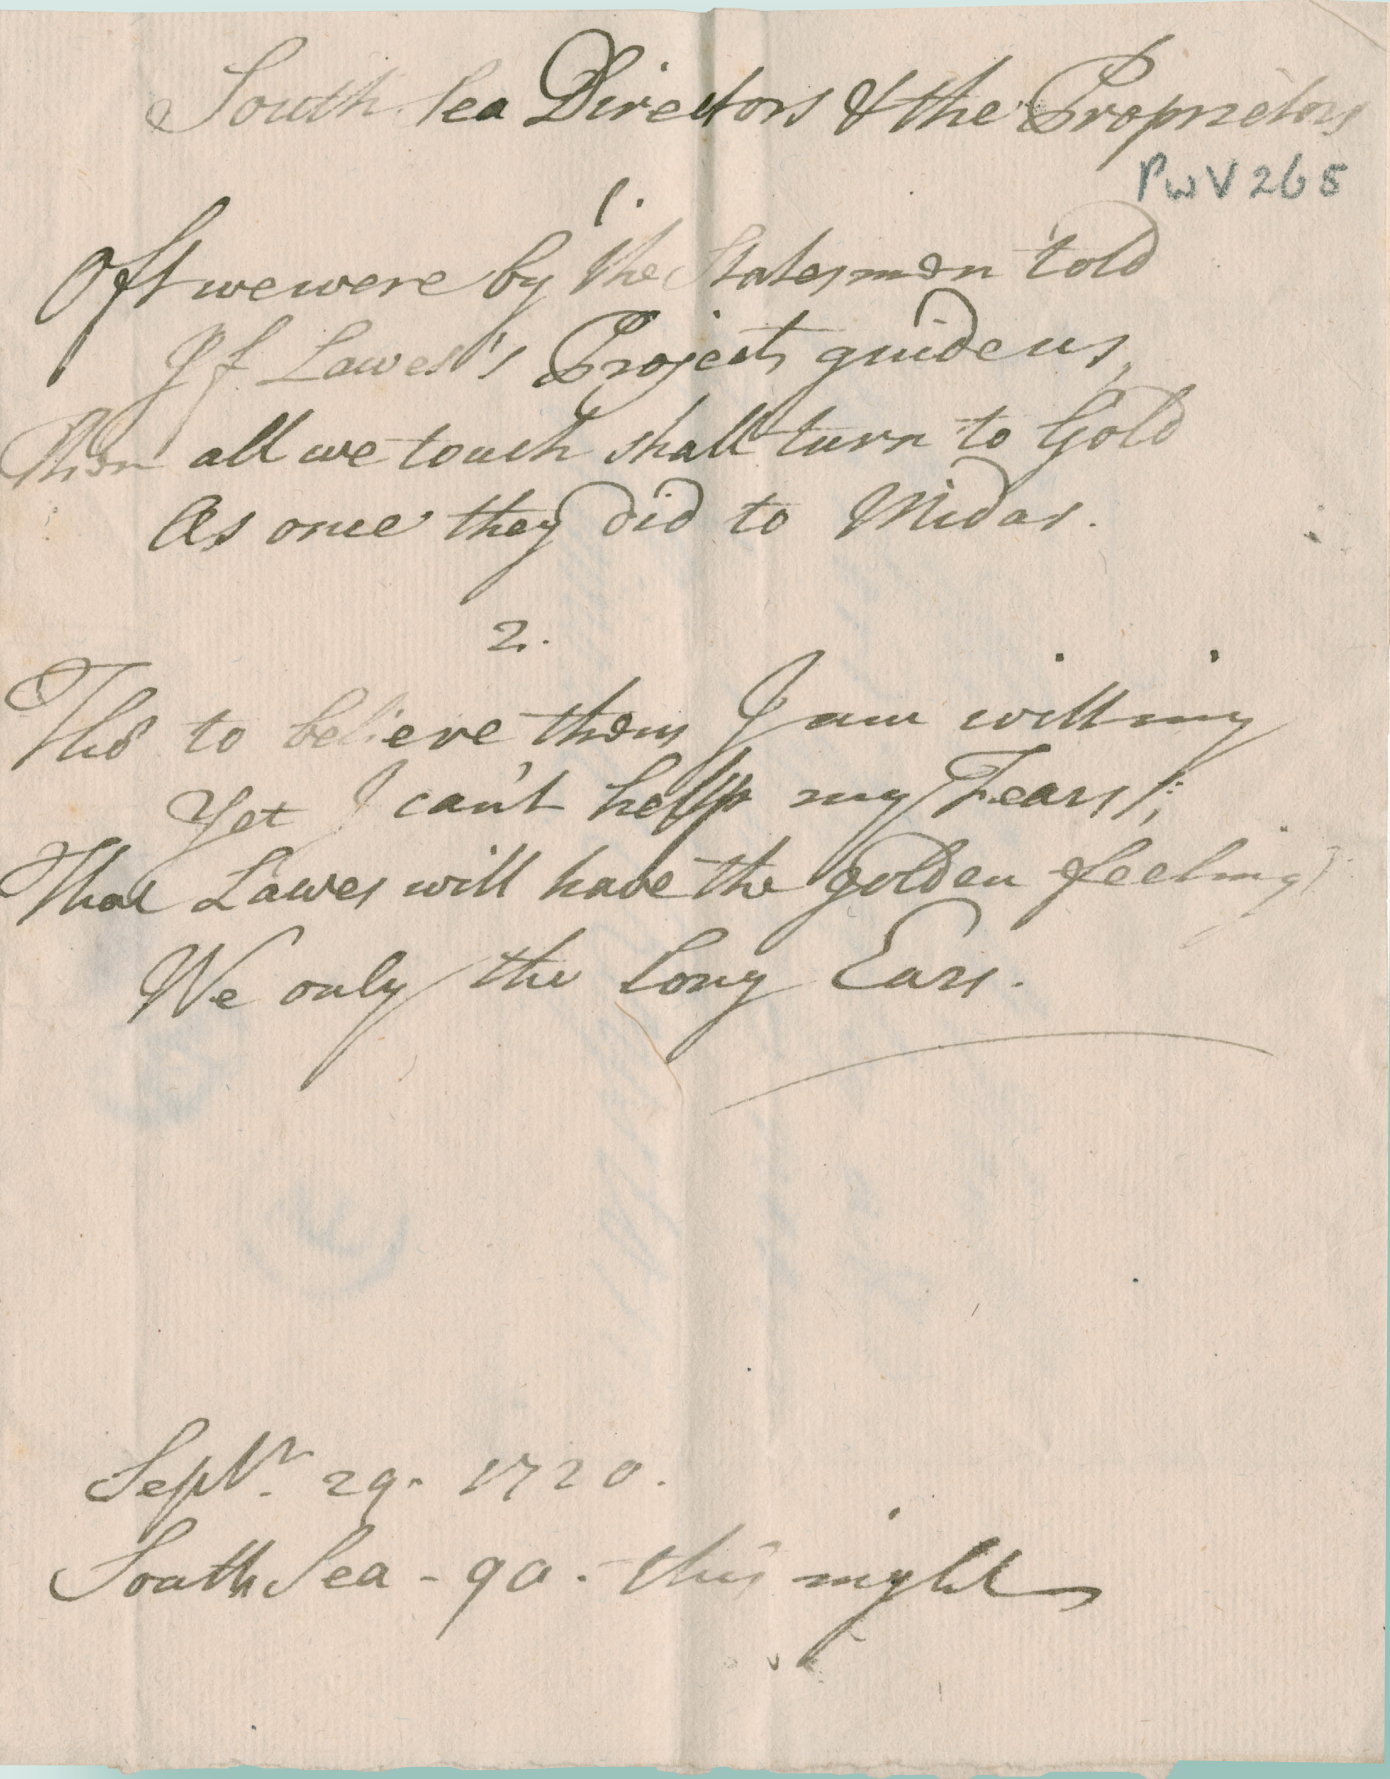 South Sea Directors & the Proprietors
PwV268
1.
Oft we were by the Statesmen told
If Lawes's Projects guide us,
Then all we touch shall turn to Gold
As once they did to Midas.
2.
Tho' to believe them I am willing
Yet I can't help my Fears;
That Lawes will have the golden feeling
We only the long Ears.
Septbr. 29. 1720.
South Sea - 90. this night